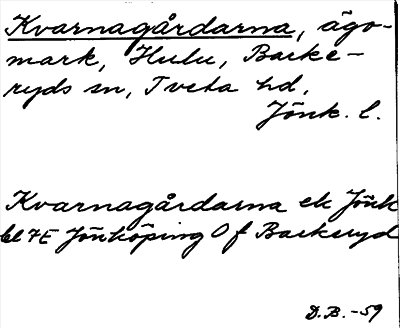 Kvarnagårdarna, ägo-
mark, Hulu, Barke-
ryds sn, Tveta hd,
Jönk. l.
Kvarnagårdarna ek Jönk
bl 7E Jönköping Of Barkeryd
D.B. -59